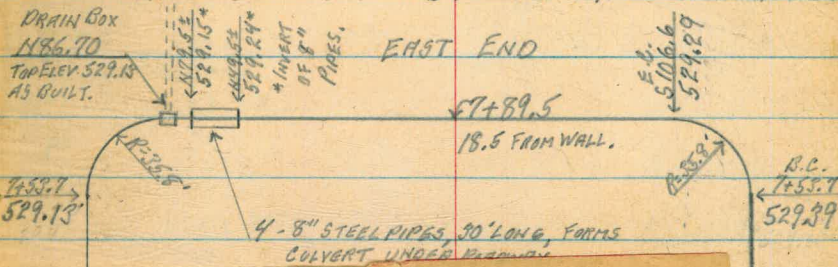 DRAIN BOX
N86.70
TOP ELEV. 529.15
AS BUILT.
N79.5±
529.15*
N49.5±
529.24*
*INVERT
OF 8"
PIPES.
EAST END
E.C.
S106.6
529.29
7+89.5
18.5 FROM WALL.
R=35.8'
R=35.8'
7+53.7
529.13
B.C.
7+53.7
529.39
4-8" STEEL PIPES, 30' LONG, FORMS
CULVERT UNDER